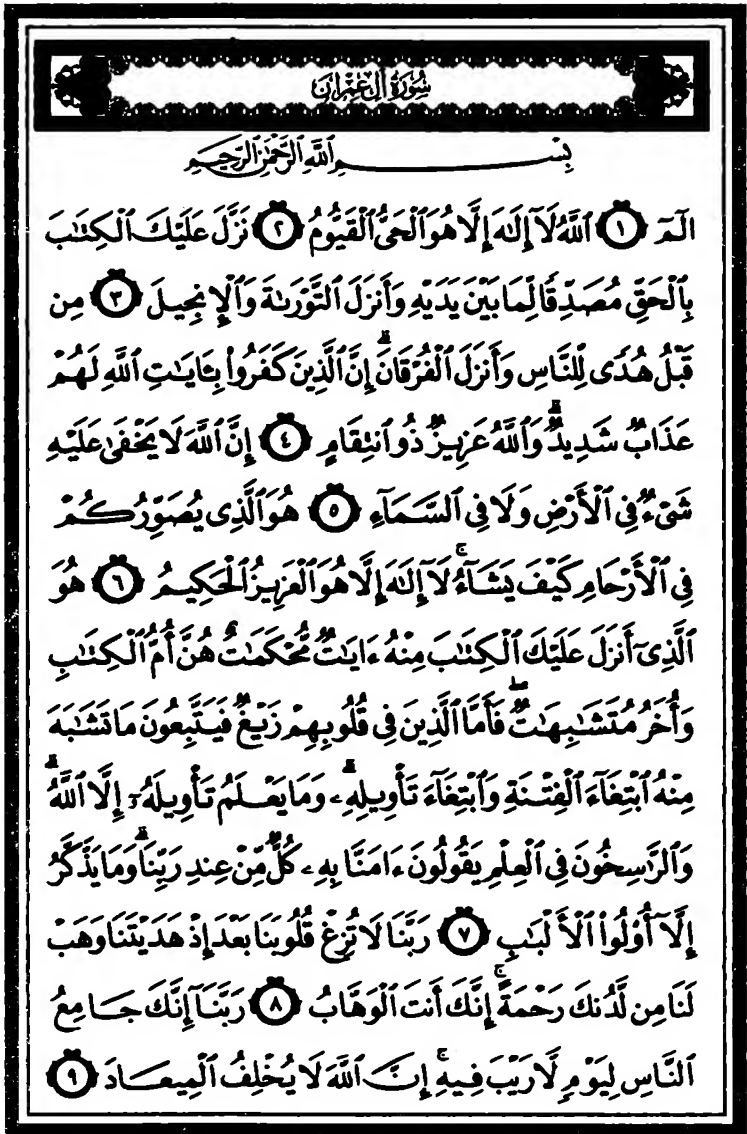 سُورَةُ آلِ عِمْرَان
بِسْمِ ٱللَّهِ ٱلرَّحْمَٰنِ ٱلرَّحِيمِ
الٓمٓ ١ ٱللَّهُ لَآ إِلَٰهَ إِلَّا هُوَ ٱلْحَىُّ ٱلْقَيُّومُ ٢ نَزَّلَ عَلَيْكَ ٱلْكِتَٰبَ
بِٱلْحَقِّ مُصَدِّقًا لِّمَا بَيْنَ يَدَيْهِ وَأَنزَلَ ٱلتَّوْرَىٰةَ وَٱلْإِنجِيلَ ٣ مِن
قَبْلُ هُدًى لِّلنَّاسِ وَأَنزَلَ ٱلْفُرْقَانَ ۗ إِنَّ ٱلَّذِينَ كَفَرُوا۟ بِـَٔايَٰتِ ٱللَّهِ لَهُمْ
عَذَابٌ شَدِيدٌ ۗ وَٱللَّهُ عَزِيزٌ ذُو ٱنتِقَامٍ ٤ إِنَّ ٱللَّهَ لَا يَخْفَىٰ عَلَيْهِ
شَىْءٌ فِى ٱلْأَرْضِ وَلَا فِى ٱلسَّمَآءِ ٥ هُوَ ٱلَّذِى يُصَوِّرُكُمْ
فِى ٱلْأَرْحَامِ كَيْفَ يَشَآءُ ۚ لَآ إِلَٰهَ إِلَّا هُوَ ٱلْعَزِيزُ ٱلْحَكِيمُ ٦ هُوَ
ٱلَّذِىٓ أَنزَلَ عَلَيْكَ ٱلْكِتَٰبَ مِنْهُ ءَايَٰتٌ مُّحْكَمَٰتٌ هُنَّ أُمُّ ٱلْكِتَٰبِ
وَأُخَرُ مُتَشَٰبِهَٰتٌ ۖ فَأَمَّا ٱلَّذِينَ فِى قُلُوبِهِمْ زَيْغٌ فَيَتَّبِعُونَ مَا تَشَٰبَهَ
مِنْهُ ٱبْتِغَآءَ ٱلْفِتْنَةِ وَٱبْتِغَآءَ تَأْوِيلِهِۦ ۗ وَمَا يَعْلَمُ تَأْوِيلَهُۥٓ إِلَّا ٱللَّهُ ۗ
وَٱلرَّٰسِخُونَ فِى ٱلْعِلْمِ يَقُولُونَ ءَامَنَّا بِهِۦ كُلٌّ مِّنْ عِندِ رَبِّنَا ۗ وَمَا يَذَّكَّرُ
إِلَّآ أُو۟لُوا۟ ٱلْأَلْبَٰبِ ٧ رَبَّنَا لَا تُزِغْ قُلُوبَنَا بَعْدَ إِذْ هَدَيْتَنَا وَهَبْ
لَنَا مِن لَّدُنكَ رَحْمَةً ۚ إِنَّكَ أَنتَ ٱلْوَهَّابُ ٨ رَبَّنَآ إِنَّكَ جَامِعُ
ٱلنَّاسِ لِيَوْمٍ لَّا رَيْبَ فِيهِ ۚ إِنَّ ٱللَّهَ لَا يُخْلِفُ ٱلْمِيعَادَ ٩